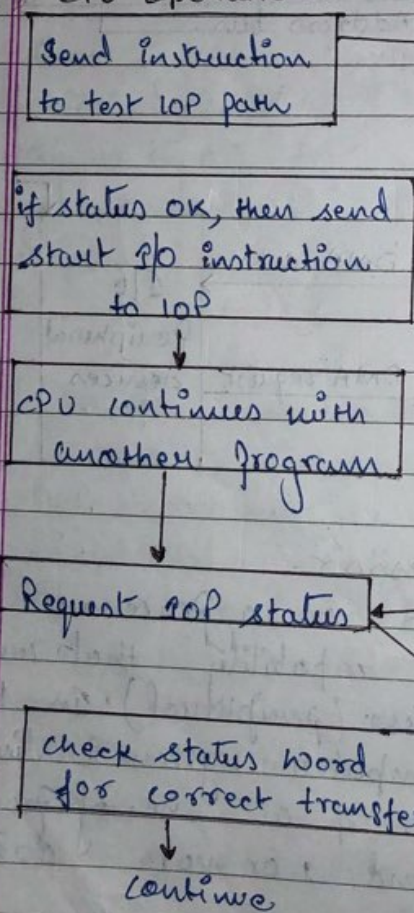 Send instruction
to test IOP path
if status OK, then send
start I/O instruction
to IOP
CPU continues with
another program
Request IOP status
check status word
for correct transfe
continue